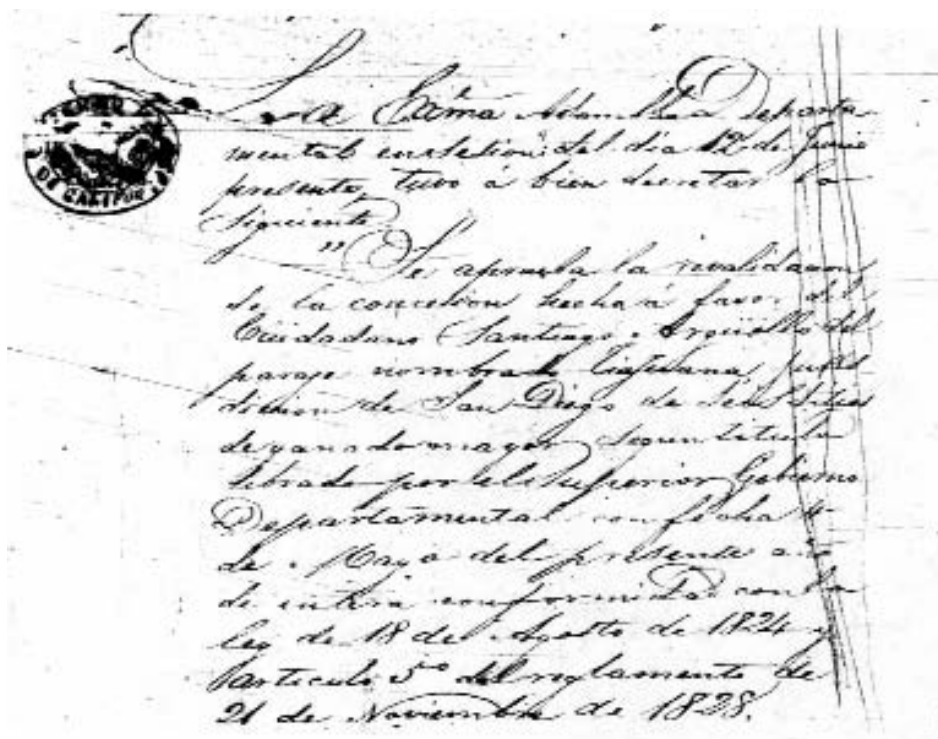 La Exma Asamblea Departa-
mental en sesion del dia 12 de Junio
presente, tuvo á bien decretar lo
siguiente
"Se aprueba la revalidacion
de la concesion hecha á favor del
Ciudadano Santiago Arguello del
parage nombrado Tiajuana, juris-
diccion de San Diego de seis sitios
de ganado mayor segun titulo
librado por el Superior Gobierno
Departamental con fecha 4
de Mayo del presente año
de entera conformidad con la
ley de 18 de Agosto de 1824 y
articulo 5º del reglamento de
21 de Noviembre de 1828.
DE CALIFOR